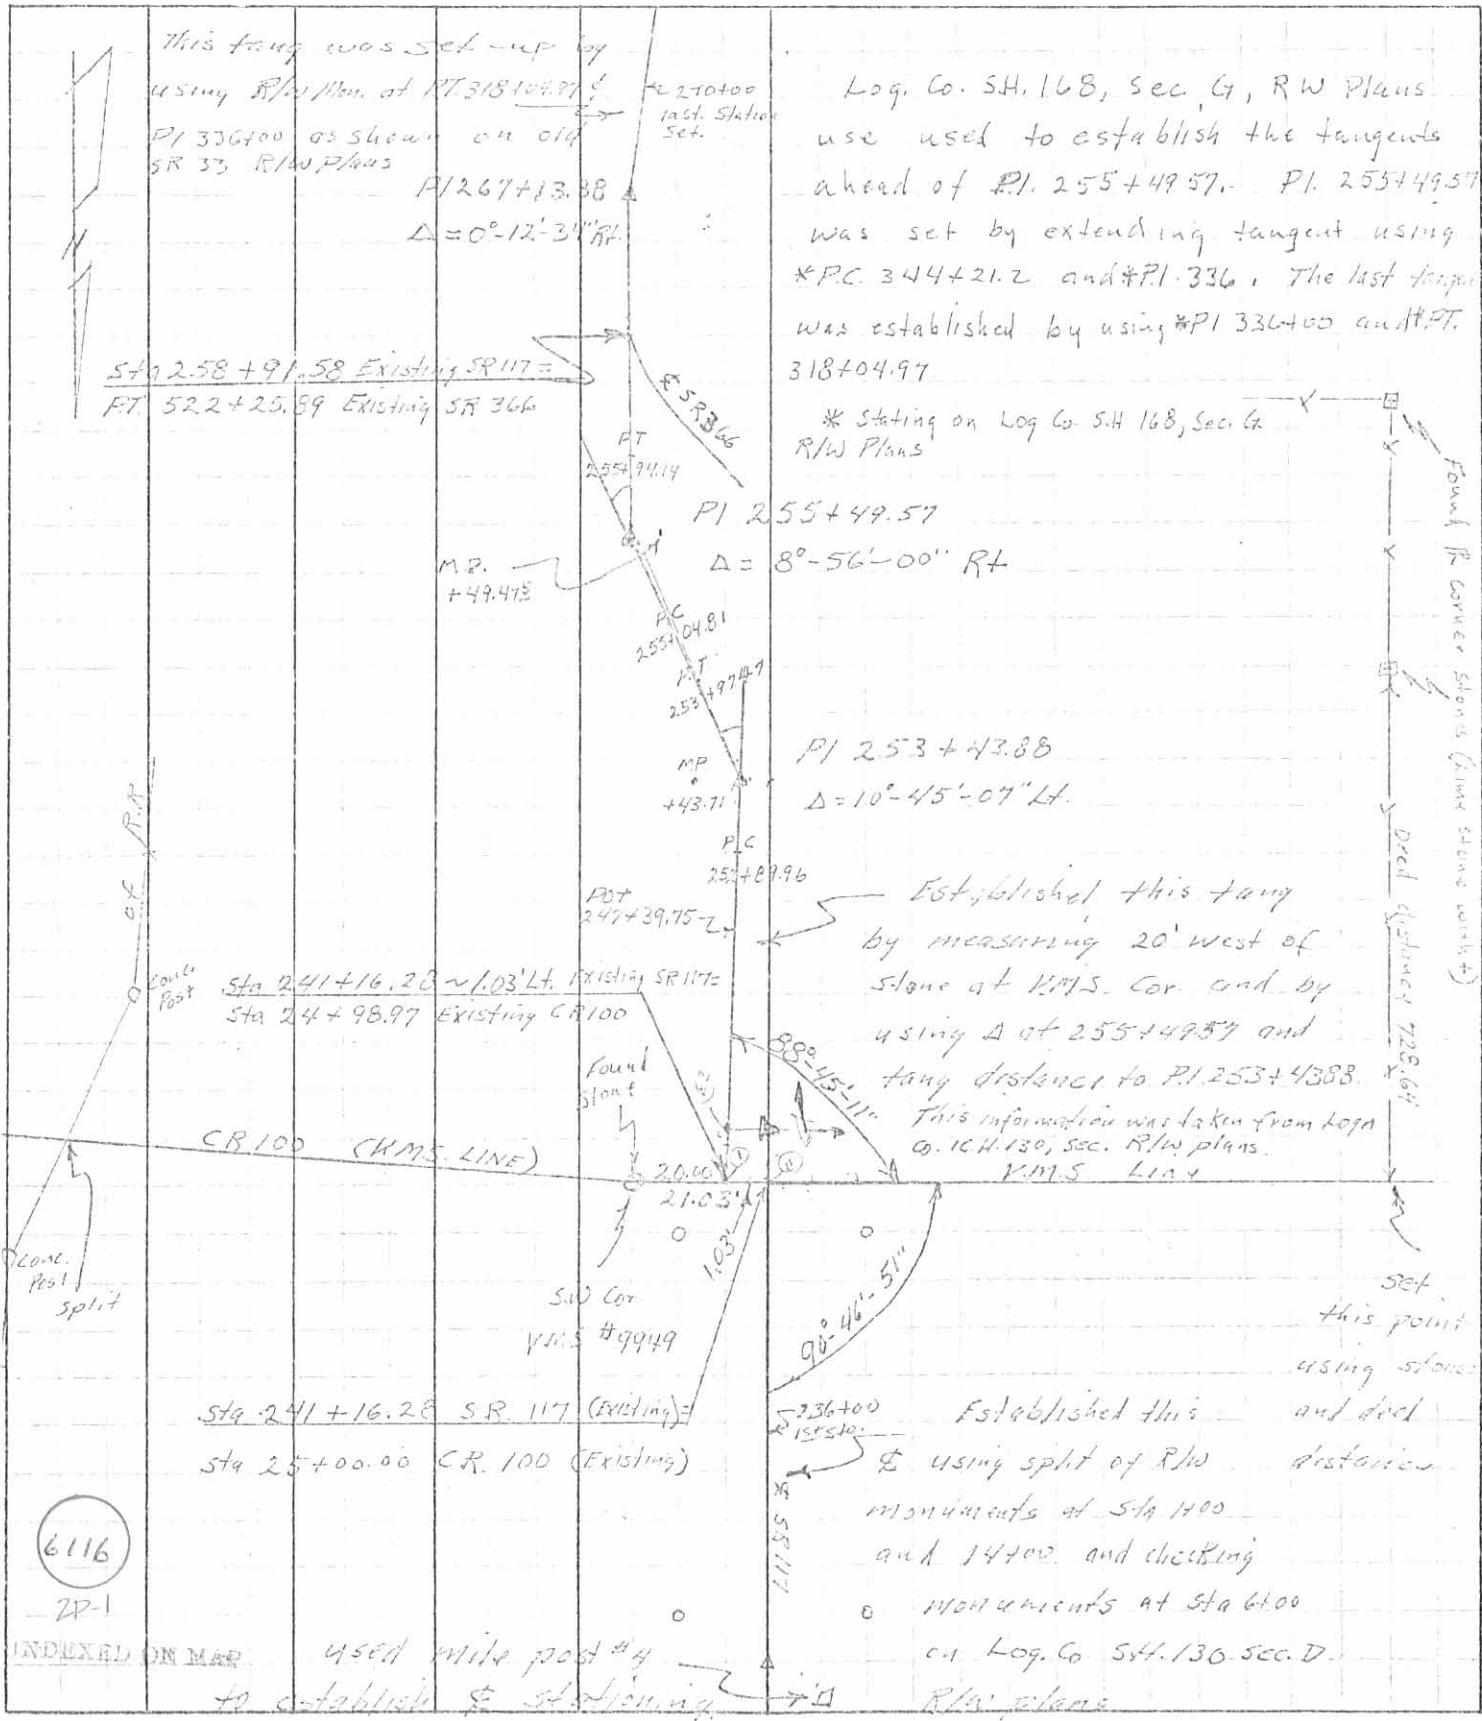 This tang was set-up by
using R/W Mon. at PT. 318+04.97 &
PI 336+00 as shown on old
SR 33 R/W Plans
PI 267+13.88
Δ = 0°-12'-34" Rt.
270+00
last. Station
Set.
Log. Co. S.H. 168, Sec. G, R W Plans
use used to establish the tangents
ahead of P.I. 255+49.57. PI. 255+49.57
was set by extending tangent using
*P.C. 344+21.2 and *P.I. 336. The last
was established by using *PI 336+00 and *PT.
318+04.97
* Stating on Log Co. S.H 168, Sec. G
R/W Plans
N
Sta 258+91.58 Existing SR 117 =
P.T. 522+25.89 Existing SR 366
℄ SR 366
PT
255+94.14
PI 255+49.57
Δ = 8°-56'-00" Rt
M.P.
+49.475
P.C
255+04.81
P.T.
253+97.47
PI 253+43.88
Δ = 10°-45'-07" Lt.
MP
+43.71
P.C
252+89.96
POT
247+39.75
Found corner stones (Lime stone with +)
Deed distance 728.64
Established this tang
by measuring 20' west of
stone at V.M.S. Cor. and by
using Δ at 255+49.57 and
tang distance to P.I. 253+43.88.
This information was taken from Logn
Co. I.C.H. 130, sec. R/W plans.
V.M.S Line
of R.R
Conc.
Post
Sta 241+16.28 ~ 1.03' Lt. Existing SR 117 =
Sta 24+98.97 Existing CR 100
88°-45'-11"
Found
Stone
CR 100 (V.M.S. LINE)
20.00
21.03'
1.03'
Conc.
Post
split
S.W Cor
V.M.S #9949
90°-46'-51"
set
this point
using stones
and deed
distances
Sta 241+16.28 S.R. 117 (Existing) =
Sta 25+00.00 C.R. 100 (Existing)
236+00
1st sta.
Established this
℄ using split of R/W
monuments at Sta 1+00
and 14+00 and checking
monuments at Sta 6+00
on Log. Co S.H. 130 Sec. D
R/W plans
℄ SR 117
6116
2P-1
INDEXED ON MAP
used mile post #4
to establish ℄ stationing